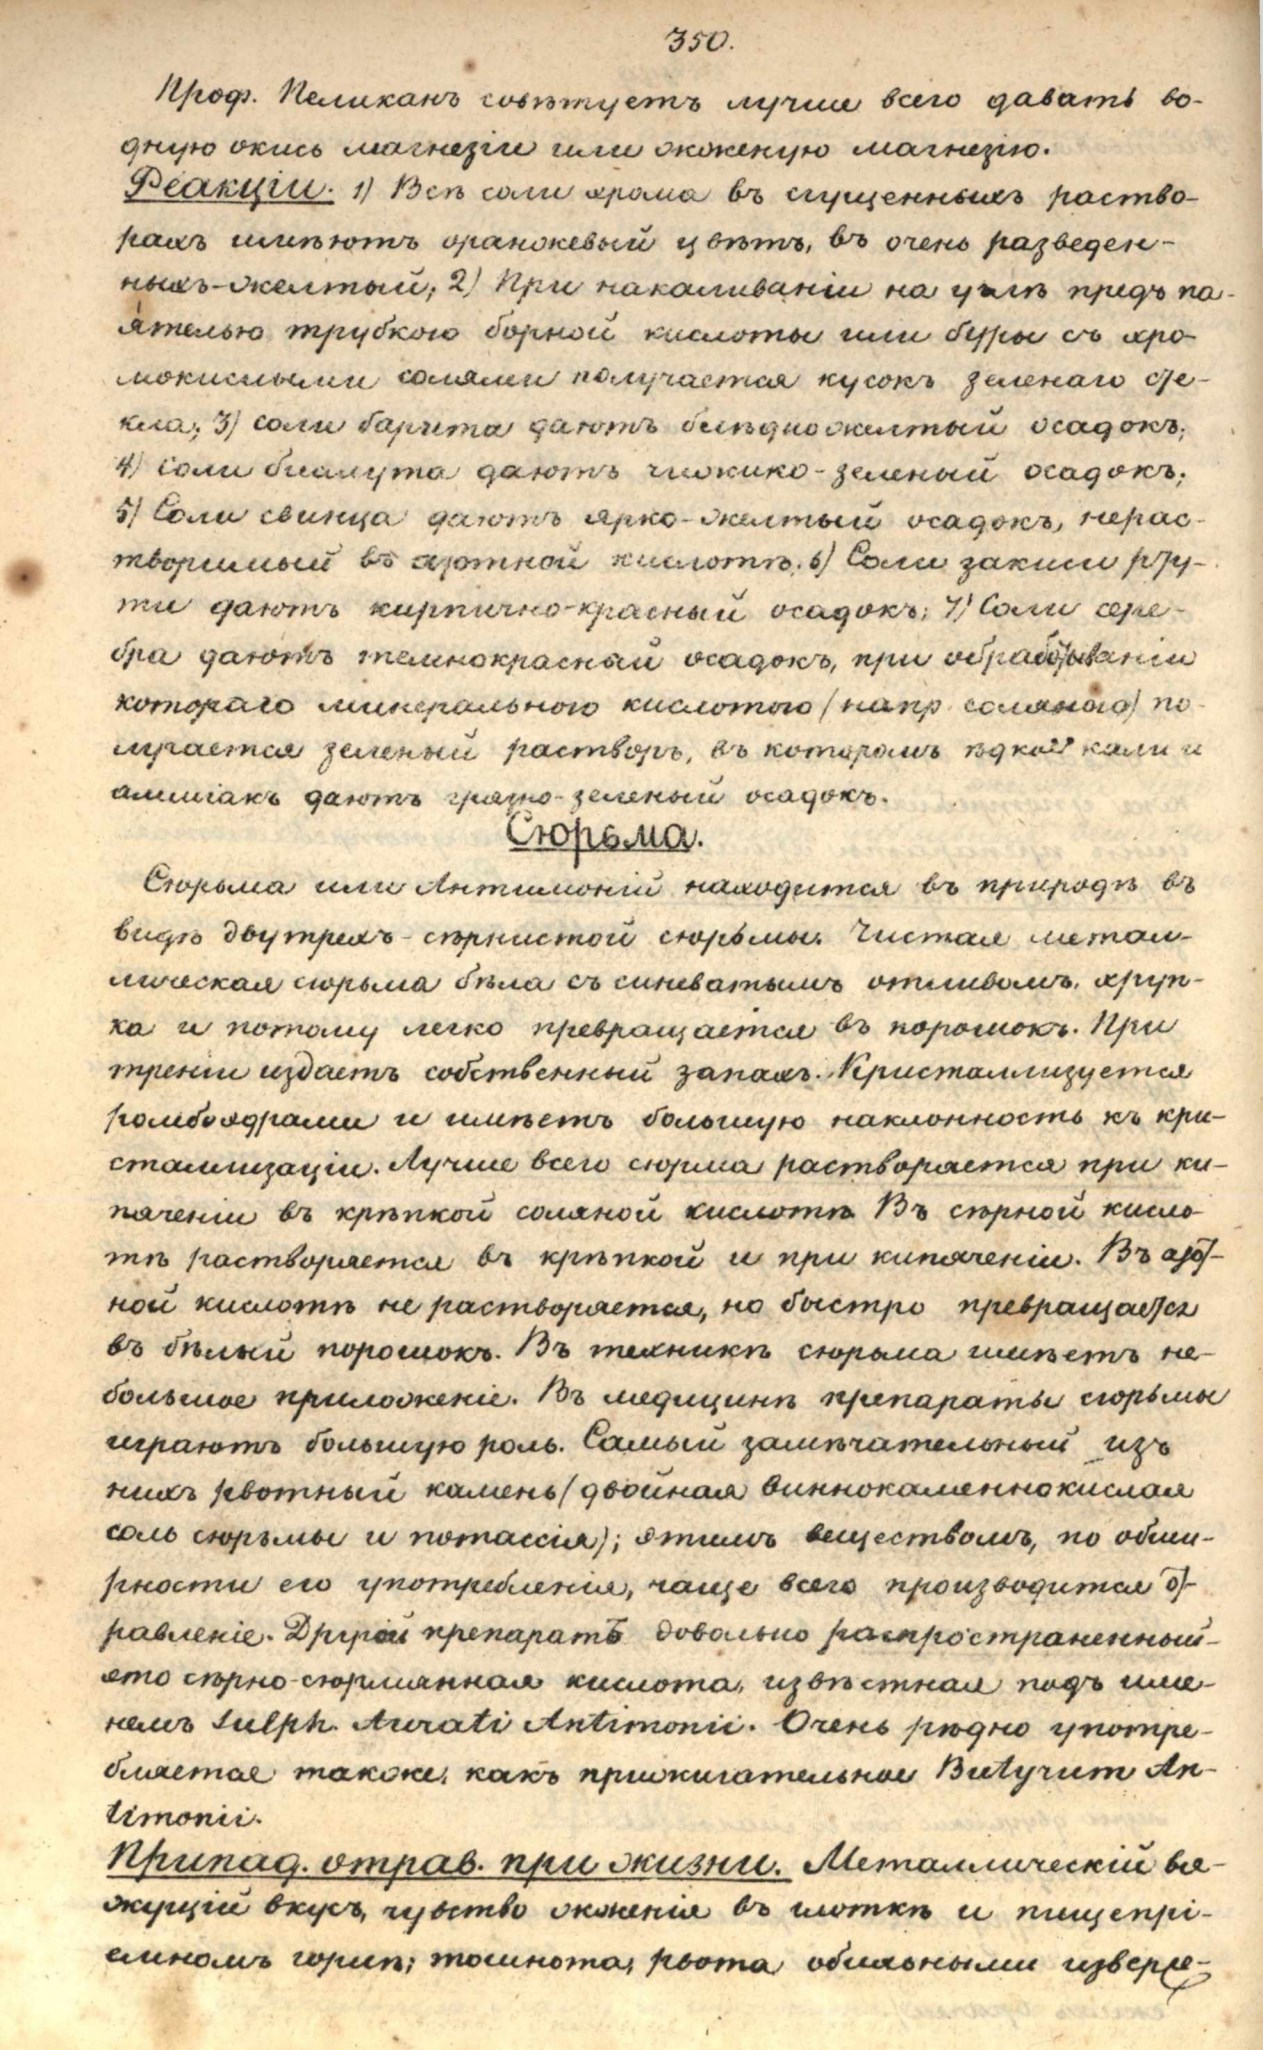 350.
Проф. Пеликанъ совѣтуетъ лучше всего давать во-
дную окись магнезіи или жженую магнезію.
Реакціи. 1) Всѣ соли хрома въ сгущенныхъ раство-
рахъ имѣютъ оранжевый цвѣтъ, въ очень разведен-
ныхъ-желтый; 2) При накаливаніи на углѣ предъ па-
ятелью трубкою борной кислоты или буры съ хро-
мокислыми солями получается кусокъ зеленаго сте-
кла; 3) соли барита даютъ блѣдножелтый осадокъ;
4) соли висмута даютъ чижико-зеленый осадокъ;
5) Соли свинца даютъ ярко-желтый осадокъ, нерас-
творимый въ азотной кислотѣ; 6) Соли закиси рту-
ти даютъ кирпично-красный осадокъ; 7) Соли сере-
бра даютъ темнокрасный осадокъ, при обработываніи
котораго минеральною кислотою (напр соляною) по-
лучается зеленый растворъ, въ которомъ ѣдкой кали и
амміакъ даютъ грязно-зеленый осадокъ.
Сюрьма.
Сюрьма или Антимоній находится въ природѣ въ
видѣ двутрехъ-сѣрнистой сюрьмы. Чистая метал-
лическая сюрьма бѣла съ синеватымъ отливомъ, хруп-
ка и потому легко превращается въ порошокъ. При
треніи издаетъ собственный запахъ. Кристаллизуется
ромбоядрами и имѣетъ большую наклонность къ кри-
сталлизаціи. Лучше всего сюрма растворяется при ки-
пяченіи въ крѣпкой соляной кислотѣ Въ сѣрной кисло
тѣ растворяется въ крѣпкой и при кипяченіи. Въ азот-
ной кислотѣ не растворяется, но быстро превращается
въ бѣлый порошокъ. Въ техникѣ сюрьма имѣетъ не-
большое приложеніе. Въ медицинѣ препараты сюрьмы
играютъ большую роль. Самый замѣчательный изъ
нихъ рвотный камень (двойная виннокаменнокислая
соль сюрьмы и потассія); этимъ веществомъ, по обши-
рности его употребленія, чаще всего производится от-
равленіе. Другой препаратъ довольно распространенный-
это сѣрно-сюрмянная кислота, извѣстная подъ име-
немъ Sulph. Aurati Antimonii. Очень рѣдко употре-
бляется также, какъ прижигательное Butyrum An-
timonii.
Припад. отрав. при жизни. Металлическій вя-
жущій вкусъ, чувство жженія въ глоткѣ и пищепрі-
емномъ горлѣ; тошнота, рвота обильными изверже-